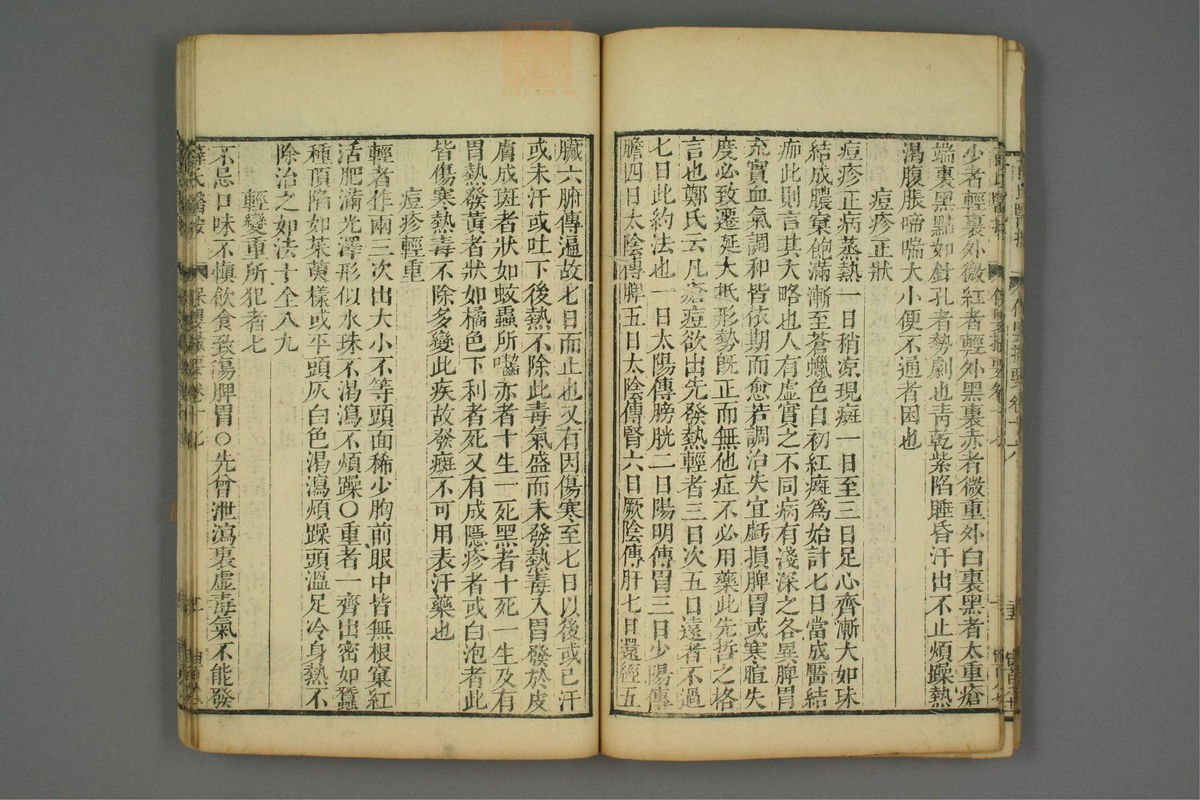 少者輕裏外微紅者輕外黑裏赤者微重外白裏黑者太重瘡
端裏黑點如針孔者勢劇也靑乾紫陷睡昏汗出不止煩躁熱
渴腹脹啼喘大小便不通者困也
痘疹正狀
痘疹正病蒸熱一日稍凉現斑一日至三日足心齊漸大如珠
結成膿窠飽滿漸至蒼蠟色自初紅斑爲始計七日當成靨結
痂此則言其大略也人有虛實之不同病有淺深之各異脾胃
充實血氣調和皆依期而愈若調治失宜虧損脾胃或寒暄失
度必致遷延大抵形勢旣正而無他症不必用藥此先哲之格
言也鄭氏云凡瘡痘欲出先發熱輕者三日次五日遠者不過
七日此約法也一日太陽傳膀胱二日陽明傳胃三日少陽傳
膽四日太陰傳脾五日太陰傳腎六日厥陰傳肝七日還經五
臟六腑傳遍故七日而止也又有因傷寒至七日以後或已汗
或未汗或吐下後熱不除此毒氣盛而未發熱毒入胃發於皮
膚成斑者狀如蚊蟲所囓赤者十生一死黑者十死一生及有
胃熱發黃者狀如橘色下利者死又有成隱疹者或白泡者此
皆傷寒熱毒不除多變此疾故發斑不可用表汗藥也
痘疹輕重
輕者作兩三次出大小不等頭面稀少胸前眼中皆無根窠紅
活肥滿光澤形似水珠不渴瀉不煩躁○重者一齊出密如蠶
種頂陷如茱萸樣或平頭灰白色渴瀉煩躁頭溫足冷身熱不
除治之如法十全八九
輕變重所犯者七
不忌口味不愼飲食致傷脾胃○先曾泄瀉裏虛毒氣不能發
薛氏醫按
保嬰撮要卷十